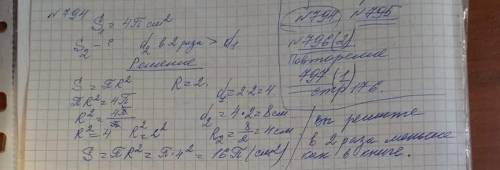 №794
S₁ = 4π см²
S₂ - ? d₂ в 2 раза > d₁
Решение
S = πR² R = 2.
πR² = 4π d = 2·2 = 4
R² = 4π/π d₂ = 4·2 = 8см
R² = 4 R² = 2² R₂ = 8/2 = 4см
S = πR² = π·4² = 16π (см²)
№794 №795
№796(2)
Повторение
797(1)
стр 176.
вы решаете
в 2 раза меньше
как в книге.